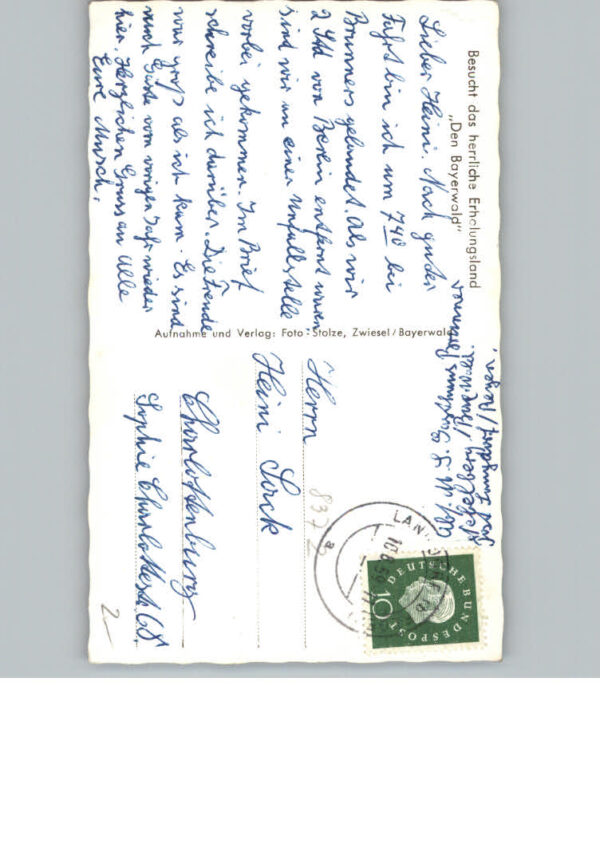 Besucht das herrliche Erholungsland
„Den Bayerwald"
Lieber Heini. Nach guter
Fahrt bin ich um 7 40 bei
Brunners gelandet. Als wir
2 Std von Berlin entfernt waren
sind wir an einer Unfallstelle
vorbei gekommen. Im Brief
schreibe ich darüber. Die Freude
war groß als ich kam. Es sind
auch Gäste vom vorigen Jahr wieder
hier. Herzlichen Gruss an Alle
Eure
Aufnahme und Verlag: Foto-Stolze, Zwiesel/Bayerwald
Herrn
Heini
Charlottenburg
Sophie Charlottestr 68
8372
2-
LAN
a
DEUTSCHE BUNDESPOST
10